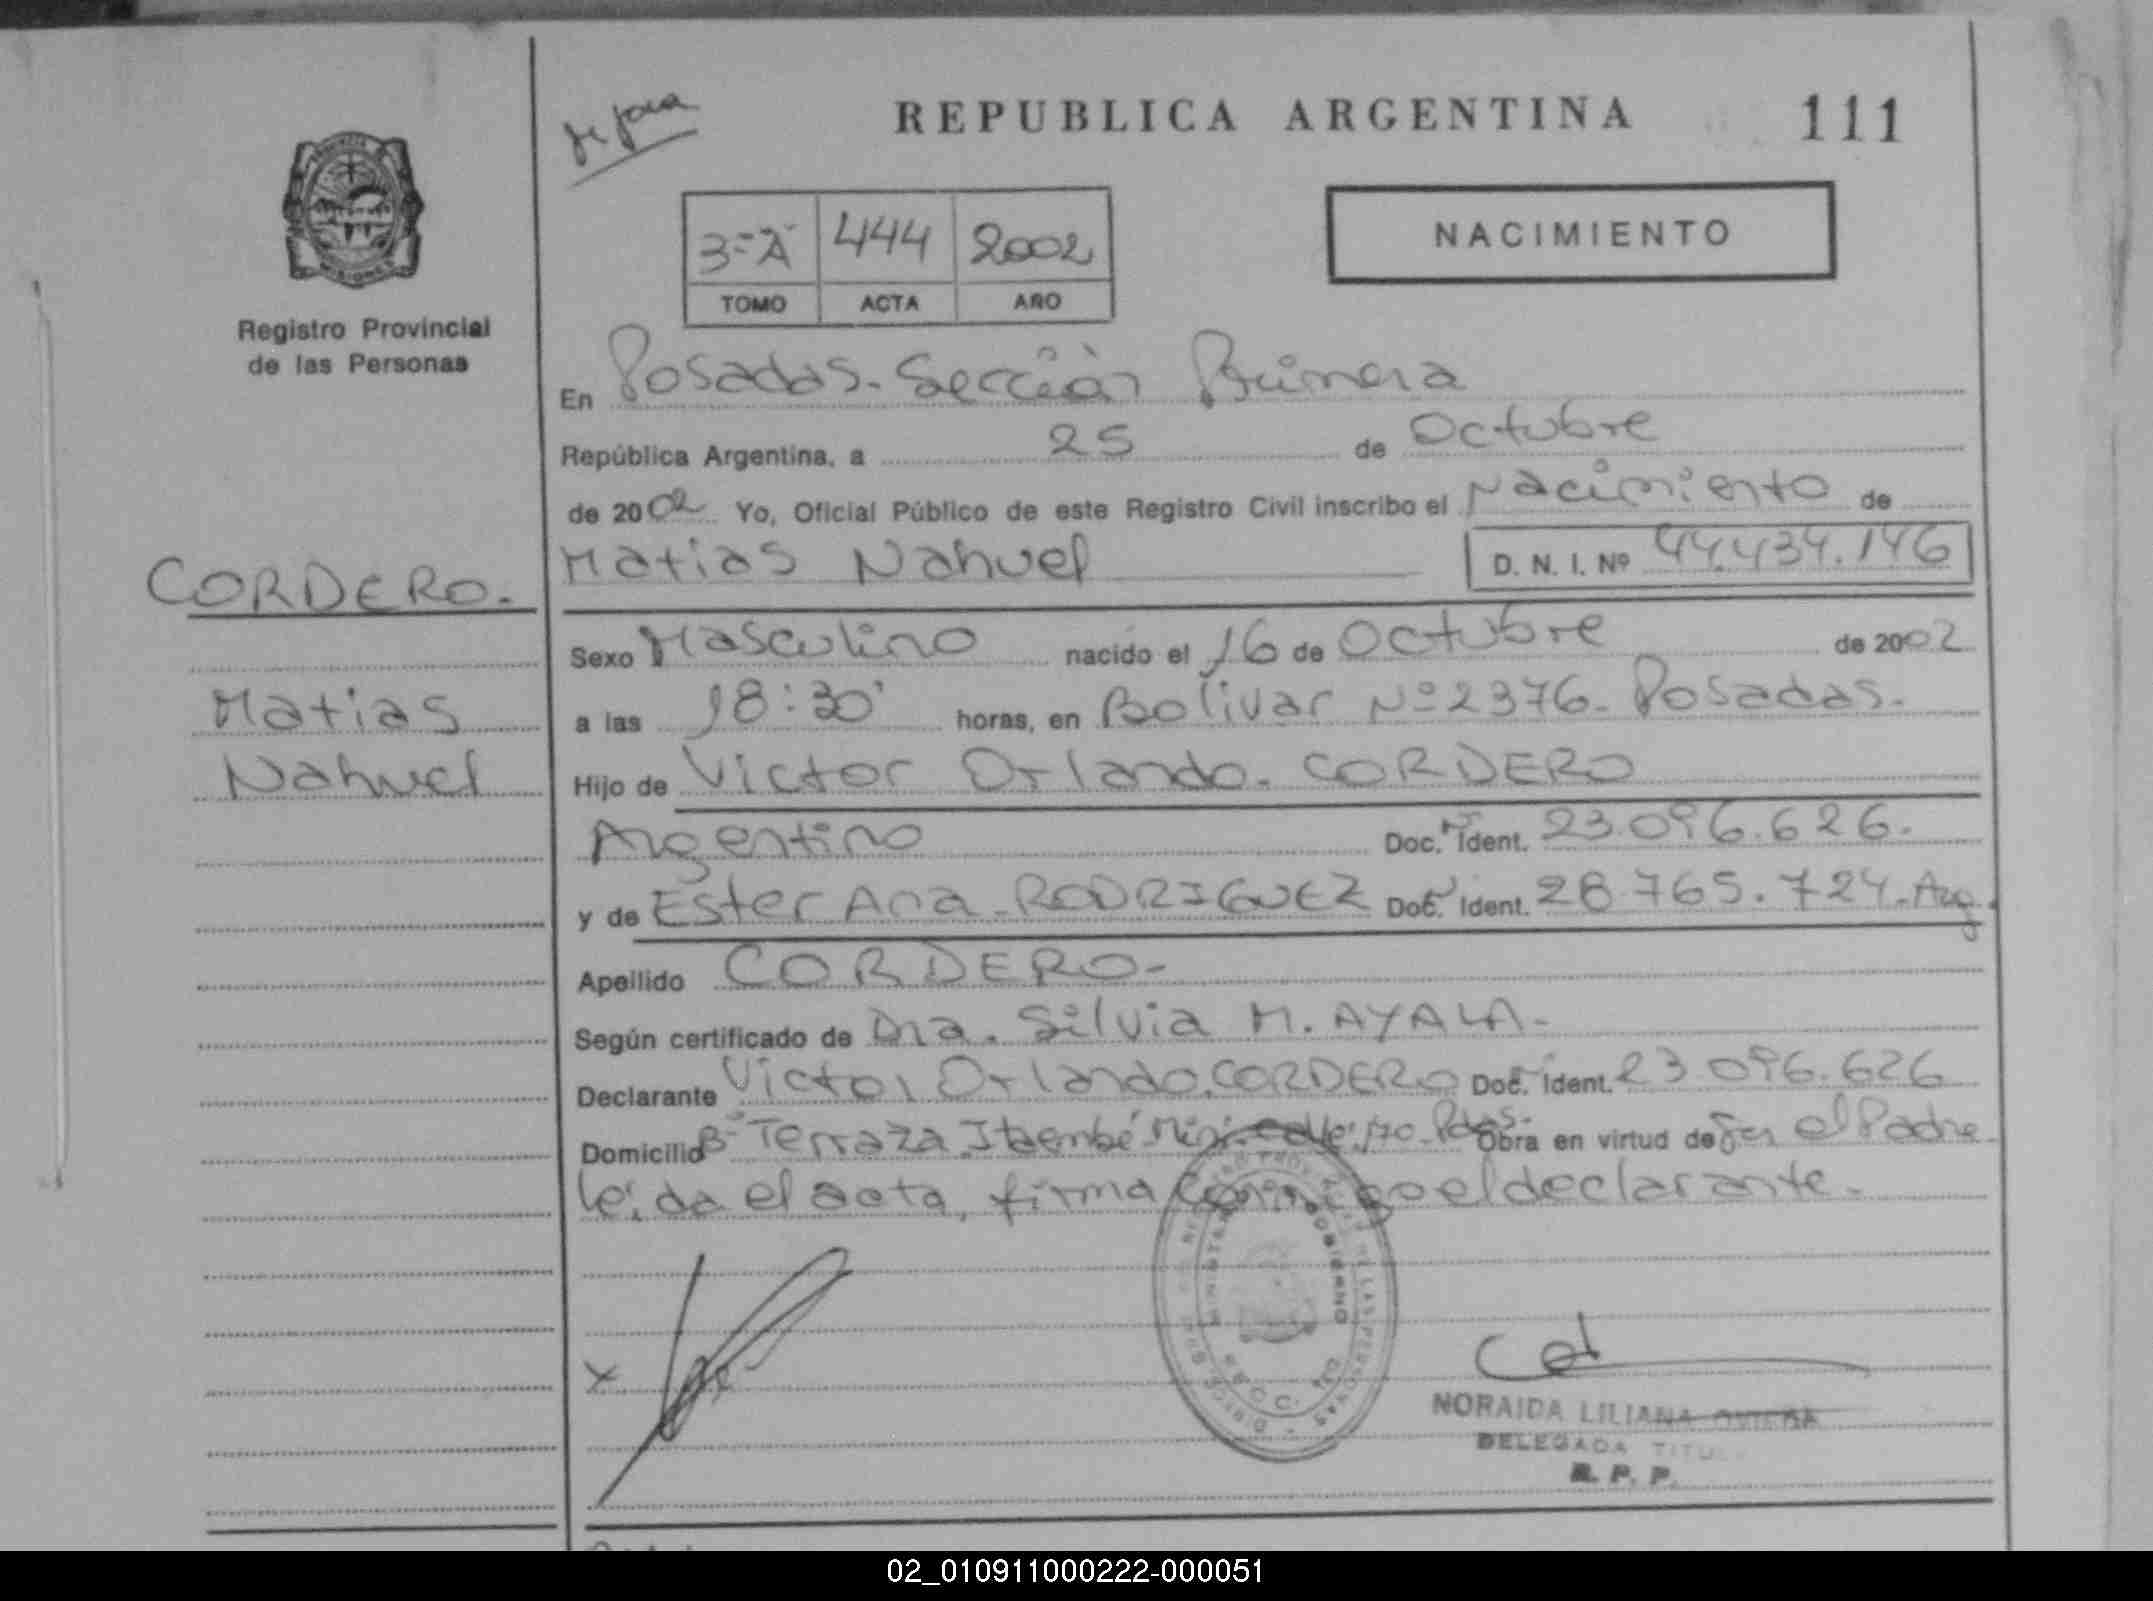 REPUBLICA ARGENTINA 111
3-A 444 2002
TOMO ACTA AÑO
NACIMIENTO
PROVINCIA
MISIONES
Registro Provincial
de las Personas
En Posadas. Sección Primera
República Argentina, a 25 de Octubre
de 2002 Yo, Oficial Público de este Registro Civil inscribo el Nacimiento de
Matias Nahuel D. N. I. Nº 44.434.146
CORDERO.
Matias
Nahuel
Sexo Masculino nacido el 16 de Octubre de 2002
a las 18:30' horas, en Bolivar Nº 2376. Posadas.
Hijo de Victor Orlando. CORDERO
Argentino Doc. Ident. 23.096.626.
y de Ester Ana. RODRIGUEZ Doc. Ident. 28.765.724. Arg.
Apellido CORDERO-
Según certificado de Dra. Silvia M. AYALA-
Declarante Victor Orlando. CORDERO Doc. Ident. 23.096.626
Domicilio Bº Terraza Itaembé Miní Pdas. Obra en virtud de Ser el Padre
leida el acta, firma conmigo el declarante.
MINISTERIO GOBIERNO
NORAIDA LILIANA
DELEGADA
R. P. P.
02_010911000222-000051